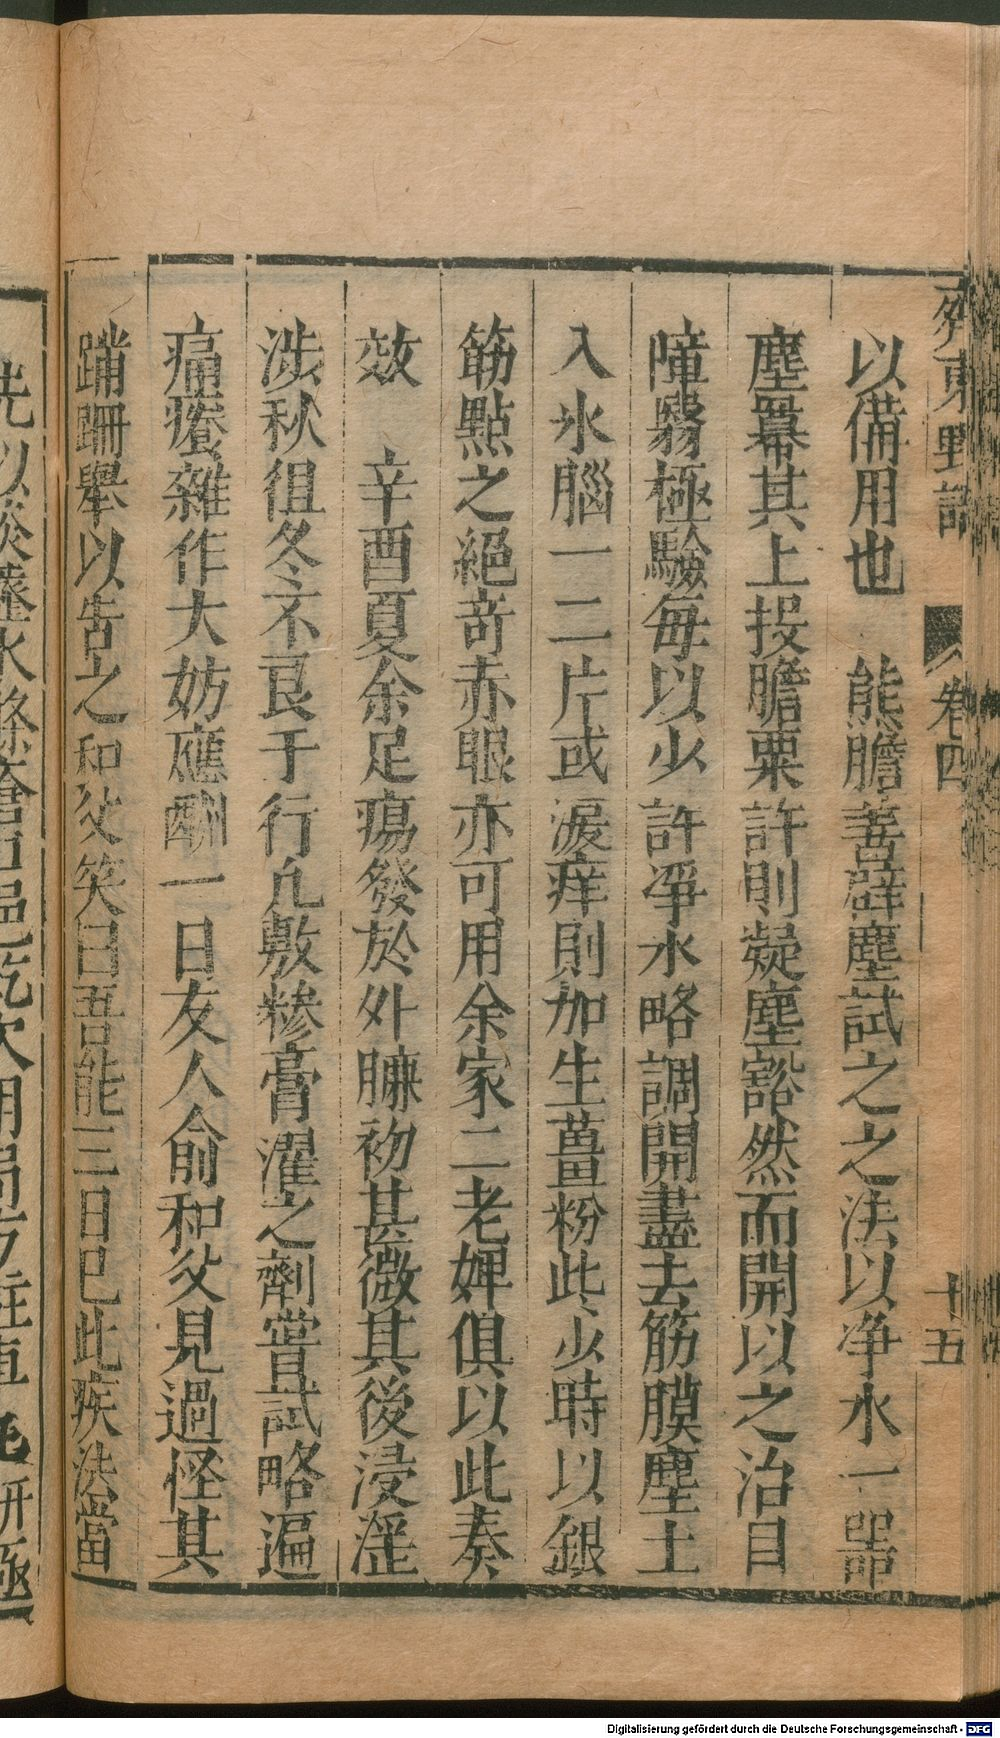 齊東野語 卷四 十五
以備用也 熊膽善辟塵試之之法以净水一器
塵羃其上投膽粟許則凝塵豁然而開以之治目
障翳極驗每以少許淨水略調開盡去筋膜塵土
入氷腦一二片或淚痒則加生薑粉些少時以銀
筋點之絕竒赤眼亦可用余家二老婢俱以此奏
效 辛酉夏余足瘍發於外臁初甚微其後浸淫
涉秋徂冬不良于行凢敷糝膏濯之劑嘗試略遍
痛癢雜作大妨應酬一日友人俞和父見過怪其
蹣跚舉以告之和父笑曰吾能三日已此疾法當
先以淡虀水滌瘡口浥乾次用局方駐車 研極
Digitalisierung gefördert durch die Deutsche Forschungsgemeinschaft - DFG